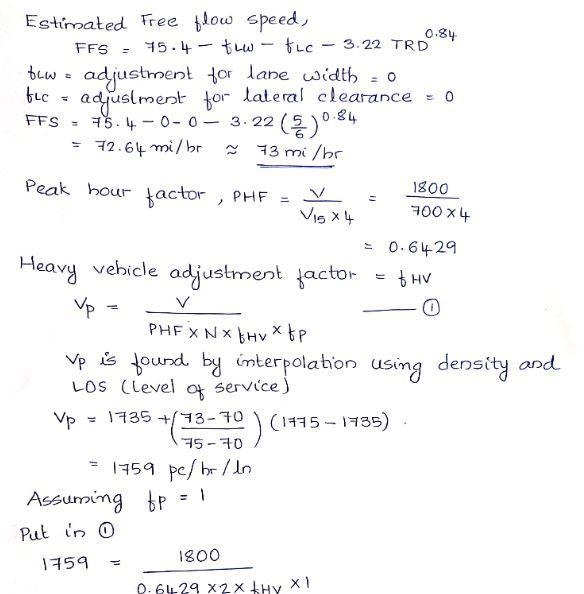 Estimated Free flow speed,
FFS = 75.4 - fLW - fLC - 3.22 TRD^0.84
fLW = adjustment for lane width = 0
fLC = adjustment for lateral clearance = 0
FFS = 75.4 - 0 - 0 - 3.22 (5/6)^0.84
= 72.64 mi/hr ≈ 73 mi/hr
Peak hour factor, PHF = V / V15 × 4 = 1800 / 700 × 4
= 0.6429
Heavy vehicle adjustment factor = fHV
Vp = V / PHF × N × fHV × fP —— ①
Vp is found by interpolation using density and
LOS (level of service)
Vp = 1735 + (73-70 / 75-70) (1775 - 1735) .
= 1759 pc/hr/ln
Assuming fP = 1
Put in ①
1759 = 1800 / 0.6429 × 2 × fHV × 1